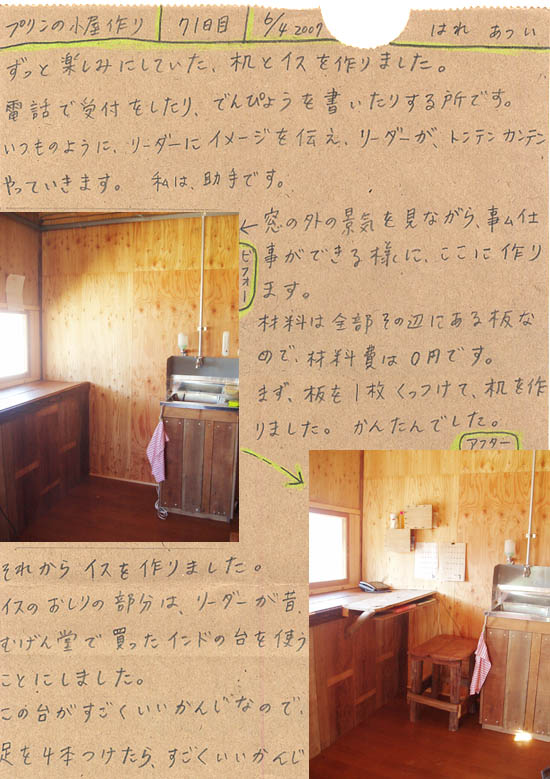 プリンの小屋作り 71日目 6/4 2009 はれ あつい
ずっと楽しみにしていた、机とイスを作りました。
電話で受付をしたり、でんぴょうを書いたりする所です。
いつものように、リーダーにイメージを伝え、リーダーが、トンテンカンテン
やっていきます。 私は、助手です。
←窓の外の景気を見ながら、事ム仕
事ができる様に、ここに作り
ます。
ビフォー
材料は全部その辺にある板な
ので、材料費は0円です。
まず、板を1枚くっつけて、机を作
りました。 かんたんでした。
アフター
それからイスを作りました。
イスのおしりの部分は、リーダーが昔、
むげん堂で買ったインドの台を使う
ことにしました。
この台がすごくいいかんじなので、
足を4本つけたら、すごくいいかんじ